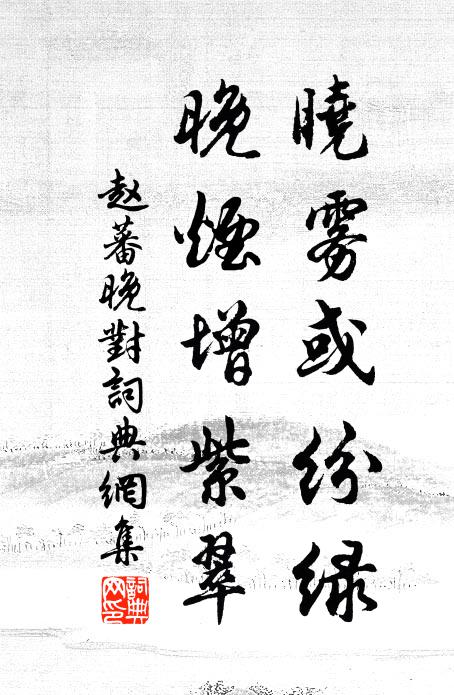 曉霧或紛綠
晚煙增紫翠
赵蕃晚對詞典網集
詞典网印